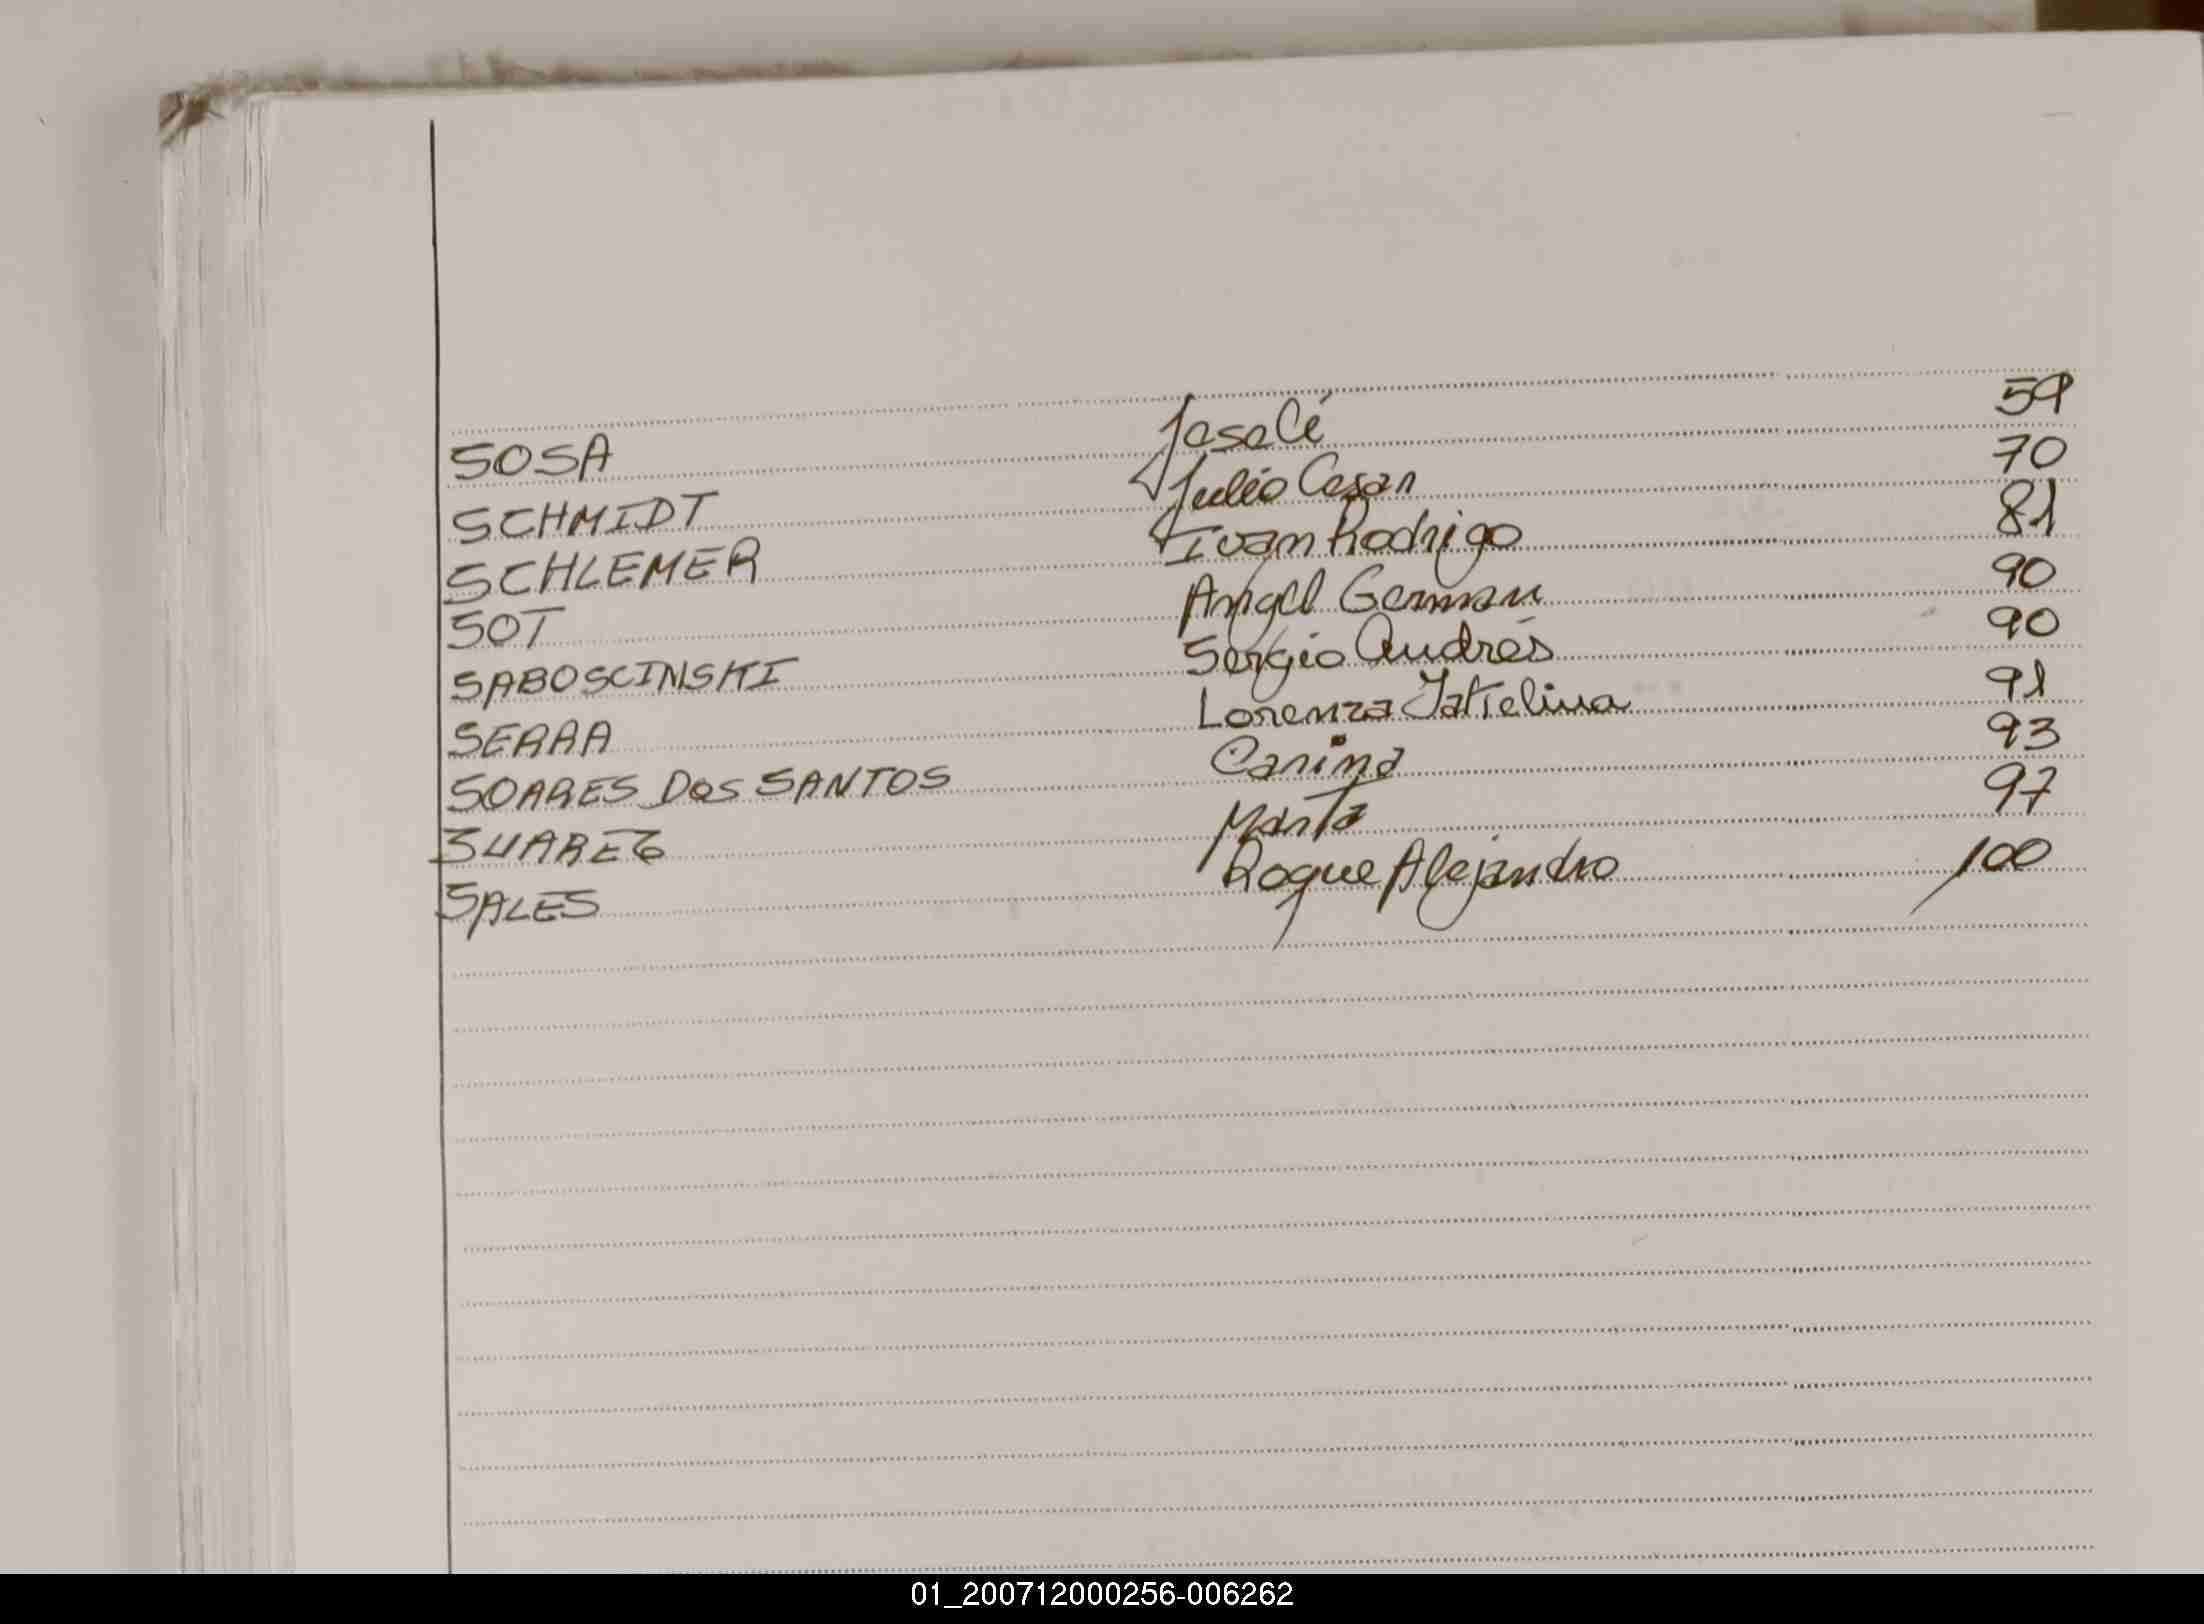 SOSA José Cé 59
SCHMIDT Julio Cesar 70
SCHLEMER Ivan Rodrigo 81
SOT Angel German 90
SABOSCINSKI Sergio Andrés 90
SERRA Lorenza Jakelina 91
SOARES DOS SANTOS Carina 93
SUAREZ Marta 97
SALES Roque Alejandro 100
01_200712000256-006262